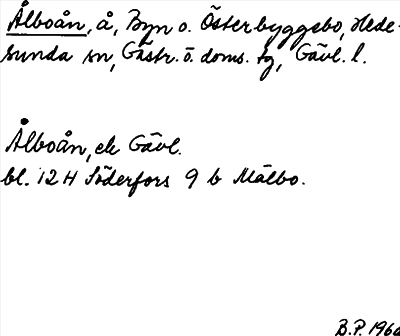 Ålboån, å, Byn o. Österbyggebo, Hede-
sunda sn, Gästr. ö. doms. tg, Gävl. l.
Ålboån, ek Gävl.
bl. 12 H Söderfors 9 b Mälbo.
B.P. 1960